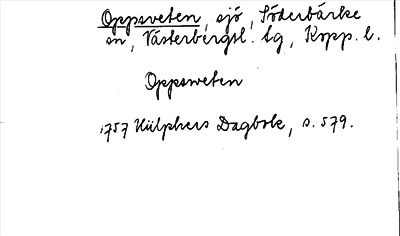 Oppsveten, sjö, Söderbärke
sn, Västerbergsl. bg, Kopp. l.
Oppsweten
1757 Hülphers Dagbok, s. 579.